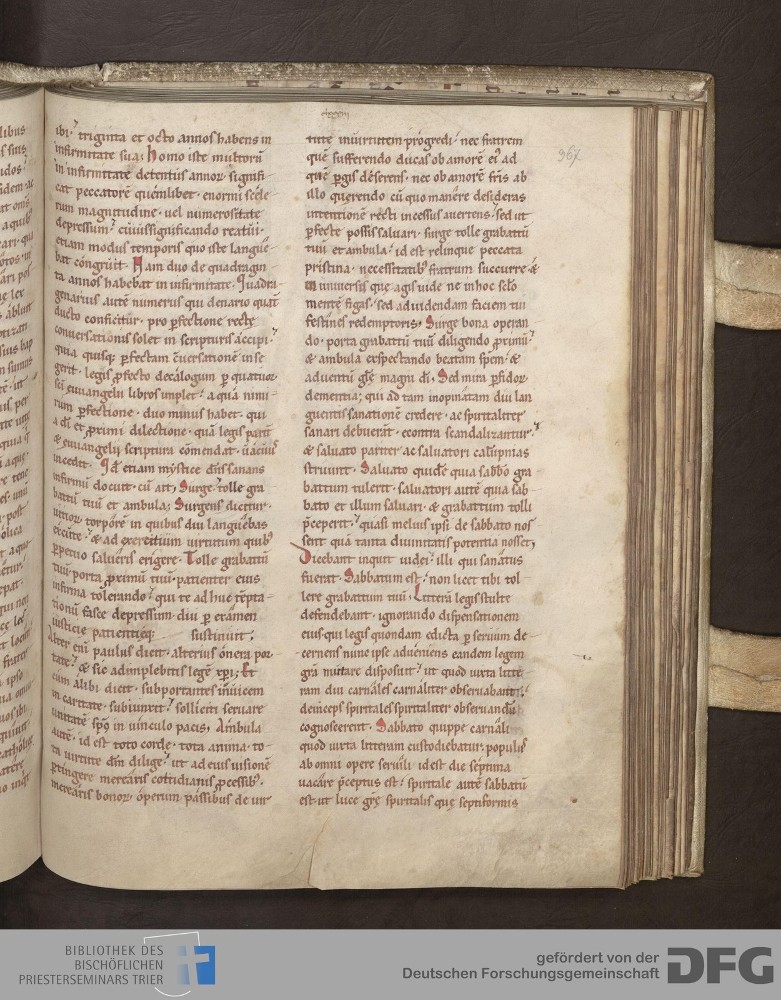 ibi. triginta et octo annos habens in
infirmitate sua; Homo iste multorū
in infirmitate detentus annor signifi-
cat peccatorē quēmlibet. enormi scele-
rum magnitudine. uel numerositate
depressum. cuius significando reatui.
etiam modus temporis quo iste langue-
bat congruit. Nam duo de quadragin
ta annos habebat in infirmitate. Quadra-
genarius autē numerus qui denario quat
ducto conficitur. pro pfectione rectę
conuersationis solet in scripturis accipi.
quia quisq; pfectam cuersationē in se
gerit. legis pfecto decalogum p quatuor
sci euuangelii libros implet. a qua nimi-
rum pfectione. duo minus habet. qui
a di et pximi dilectione. quā legis parit
& euuangelii scriptura cōmendat. uacuus
incedit. Qd etiam mystice dns sanans
infirmū docuit. cū ait; Surge. tolle gra
battū tuū et ambula; Surgens dicitur.
uitior torporē in quibus diu languebas
excute. & ad exercitium uirtutum quibꝰ
ppetuo salueris erigere. Tolle grabattū
tuū. porta pximū tuū. patienter eius
infirma tolerando. qui te adhuc tēpta-
tionū fasce depressum. diu p examen
iusticie patientięq; sustinuit;
Alter enī paulus dicit. alterius onera por-
tate. & sic adimplebitis legē xpi; Et
cum alibi dicit. subportantes inuicem
in caritate. subiunxit. solliciti seruare
unitatē spc in uinculo pacis; Ambula
autē. id est toto corde. tota anima. to-
ta uirtute dm dilige. ut ad eius uisionē
ptingere merearis cottidianis pcessibꝰ.
merearis bonor operum passibus de uir-
tute in uirtutem progredi. nec fratrem
quē sufferendo ducas ob amorē ei ad
quē pgis deserens. nec ob amorē fris ab
illo querendo cū quo manere desideras
intentionē recti incessus auertens. sed ut
pfecte possis saluari. surge tolle grabattū
tuū et ambula. id est relinque peccata
pristina. necessitatibꝰ fratrum succurre. &
in uniuersis que agis uide ne in hoc sclo
mentē figas. sed ad uidendam faciem tui
festines redemptoris; Surge bona operan
do. porta grabattū tuū diligendo pximū.
& ambula exspectando beatam spem. &
aduentū glę magni di. Sed mira pfidor
dementia; qui ad tam inopinatam diu lan
guentis sanationē credere. ac spiritaliter
sanari debuerāt. econtra scandalizantur.
& saluato pariter ac saluatori calūpnias
struunt. Saluato quidē quia sabbo gra
battum tulerit. saluatori autē quia sab
bato et illum saluari. & grabattum tolli
pceperit. quasi melius ipsi de sabbato nos
sent quā tanta diuinitatis potentia nosset;
Dicebant inquit iudei. illi qui sanatus
fuerat. Sabbatum est. non licet tibi tol-
lere grabattum tuū. Litterā legis stulte
defendebant. ignorando dispensationem
eius qui legis quondam edicta p seruum de-
cernens nunc ipse adueniens eandem legem
gra mutare disposuit. ut quod iuxta litte
ram diu carnales carnaliter obseruabant.
deinceps spiritales spiritaliter obseruandū
cognoscerent. Sabbato quippe carnali
quod iuxta litteram custodiebatur. populꝰ
ab omni opere seruili. id est die septima
uacare pceptus est. spiritale autē sabbatū
est ut luce gre spiritalis que septiformis
367
BIBLIOTHEK DES
BISCHÖFLICHEN
PRIESTERSEMINARS TRIER
gefördert von der
Deutschen Forschungsgemeinschaft
DFG